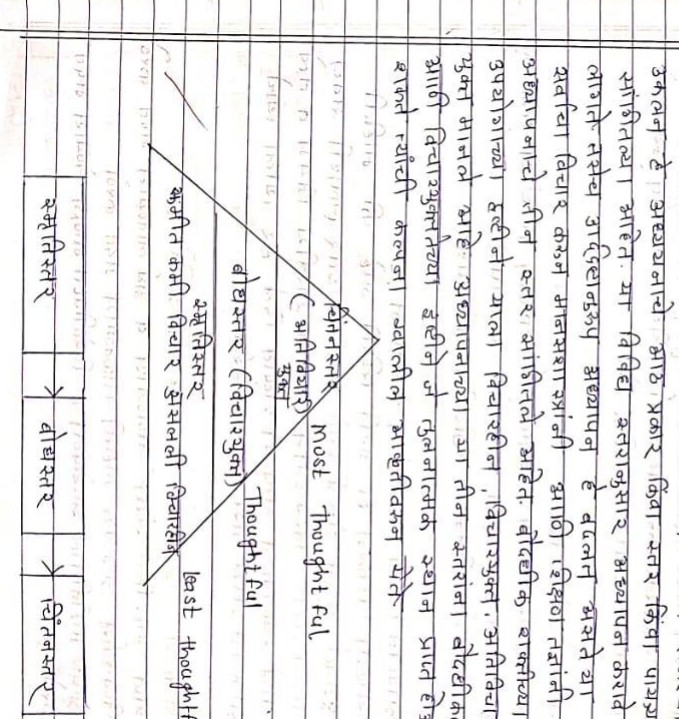 उकलन हे अध्ययनाचे आठ प्रकार किंवा स्तर किंवा
सांगितल्या आहेत. या विविध स्तरानुसार अध्यापन करावे
लागते तसेच उद्दिष्टानुरूप अध्यापन हे बदलत असते या
सर्वांचा विचार करून मानसशास्त्रज्ञांनी आणि शिक्षण तज्ञांनी
अध्यापनाचे तीन स्तर सांगितले आहेत. बौध्दीक शक्तीच्या
उपयोगाच्या दृष्टीने याला विचारहीन, विचारयुक्त, अतिविचा
युक्त मानले आहे. अध्यापनाच्या या तीन स्तरांना बौध्दीक
आणि विचारयुक्ततेच्या दृष्टीने जे तुलनात्मक स्थान प्राप्त होऊ
शकते त्यांची कल्पना खालील आकृतीवरून येते.
चिंतनस्तर
(अतिविचारी) most thoughtful
युक्त
बोधस्तर (विचारयुक्त) Thoughtful
स्मृतिस्तर
कमीत कमी विचार असलेली विचारहीन least thoughtf
स्मृतिस्तर → बोधस्तर → चिंतनस्तर